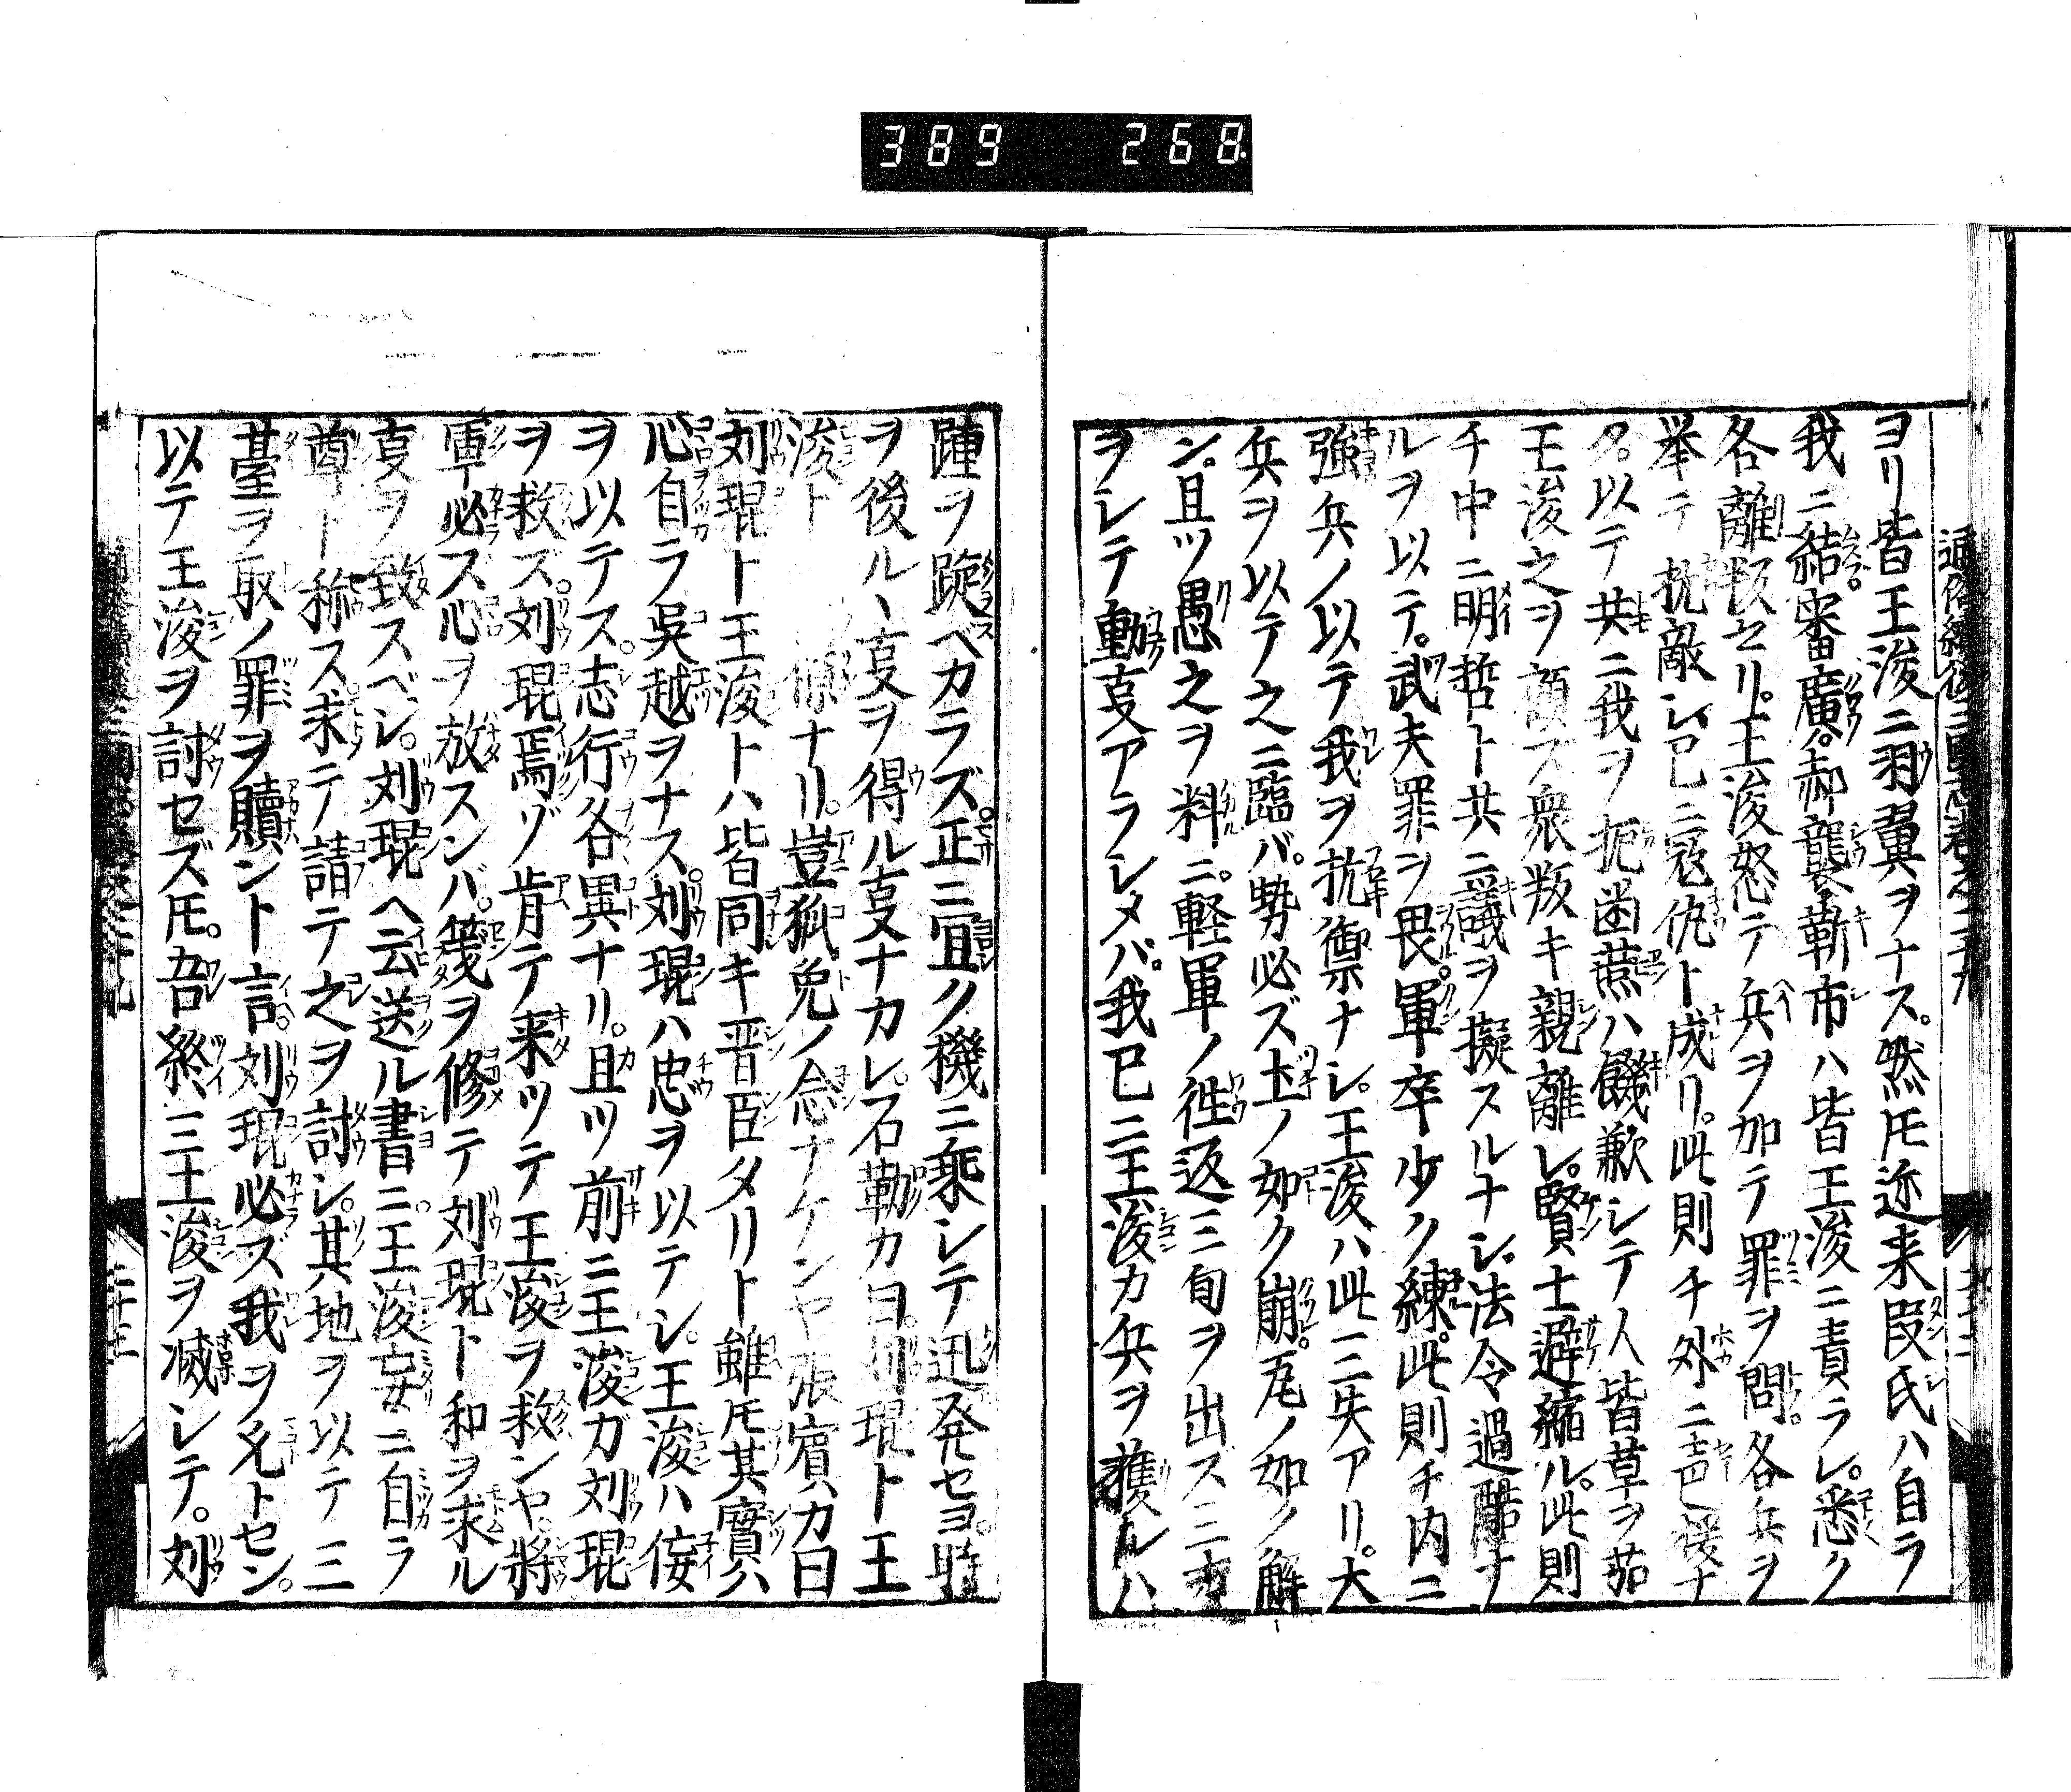 389 268
ヨリ皆王浚ニ羽翼ヲナス。然𪜈近来段氏ハ自ラ
我ニ結。審廣。郝襲。靳市ハ皆王浚ニ責ラレ。悉ク
各離叛セリ。王浚怒テ兵ヲ加テ罪ヲ問。各兵ヲ
挙テ抗敵シ已ニ寇仇ト成リ。此則チ外ニ声援ナ
ク。以テ共ニ我ヲ扼。幽燕ハ饑歉シテ人皆草ヲ茹
王浚之ヲ顧ズ衆叛キ親離レ。賢士避縮ル。此則
チ中ニ明哲ト共ニ議ヲ擬スルナシ。法令過酷ナ
ルヲ以テ。武夫罪ヲ畏。軍卒少ク練。此則チ内ニ
強兵ノ以テ我ヲ抗禦ナシ。王浚ハ此三失アリ。大
兵ヲ以テ之ニ臨バ。勢必ズ土ノ如ク崩。瓦ノ如ク解
ン。且ツ愚之ヲ料ニ。軽軍ノ徃返三旬ヲ出ズ三方
ヲシテ動叓アラシメバ。我已ニ王浚カ兵ヲ獲ルハ
踵ヲ踀ベカラズ。正ニ宜ク機ニ乗シテ迅発セヨ。時
ヲ後ルヽ叓ヲ得ル叓ナカレ。石勒カ曰。刘琨ト王
浚ト ナリ。豈狐兔ノ念ナケンヤ張賓カ曰
刘琨ト王浚トハ皆同キ晋臣タリト雖𪜈其實ハ
心自ラ呉越ヲナス。刘琨ハ忠ヲ以テシ。王浚ハ侫
ヲ以テス。志行各異ナリ。且ツ前ニ王浚ガ刘琨
ヲ救ズ。刘琨焉ゾ肯テ来ツテ王浚ヲ救ンヤ。将
軍必ス心ヲ放スンバ。箋ヲ修テ刘琨ト和ヲ求ル
叓ヲ致スベシ。刘琨ヘ云送ル書ニ。王浚妄ニ自ラ
尊ト称ス求テ請テ之ヲ討シ。其地ヲ以テ三
䑓ヲ取ノ罪ヲ贖ント言。刘琨必ズ我ヲ允トセン。
以テ王浚ヲ討セズ𪜈。吾終ニ王浚ヲ滅シテ。刘